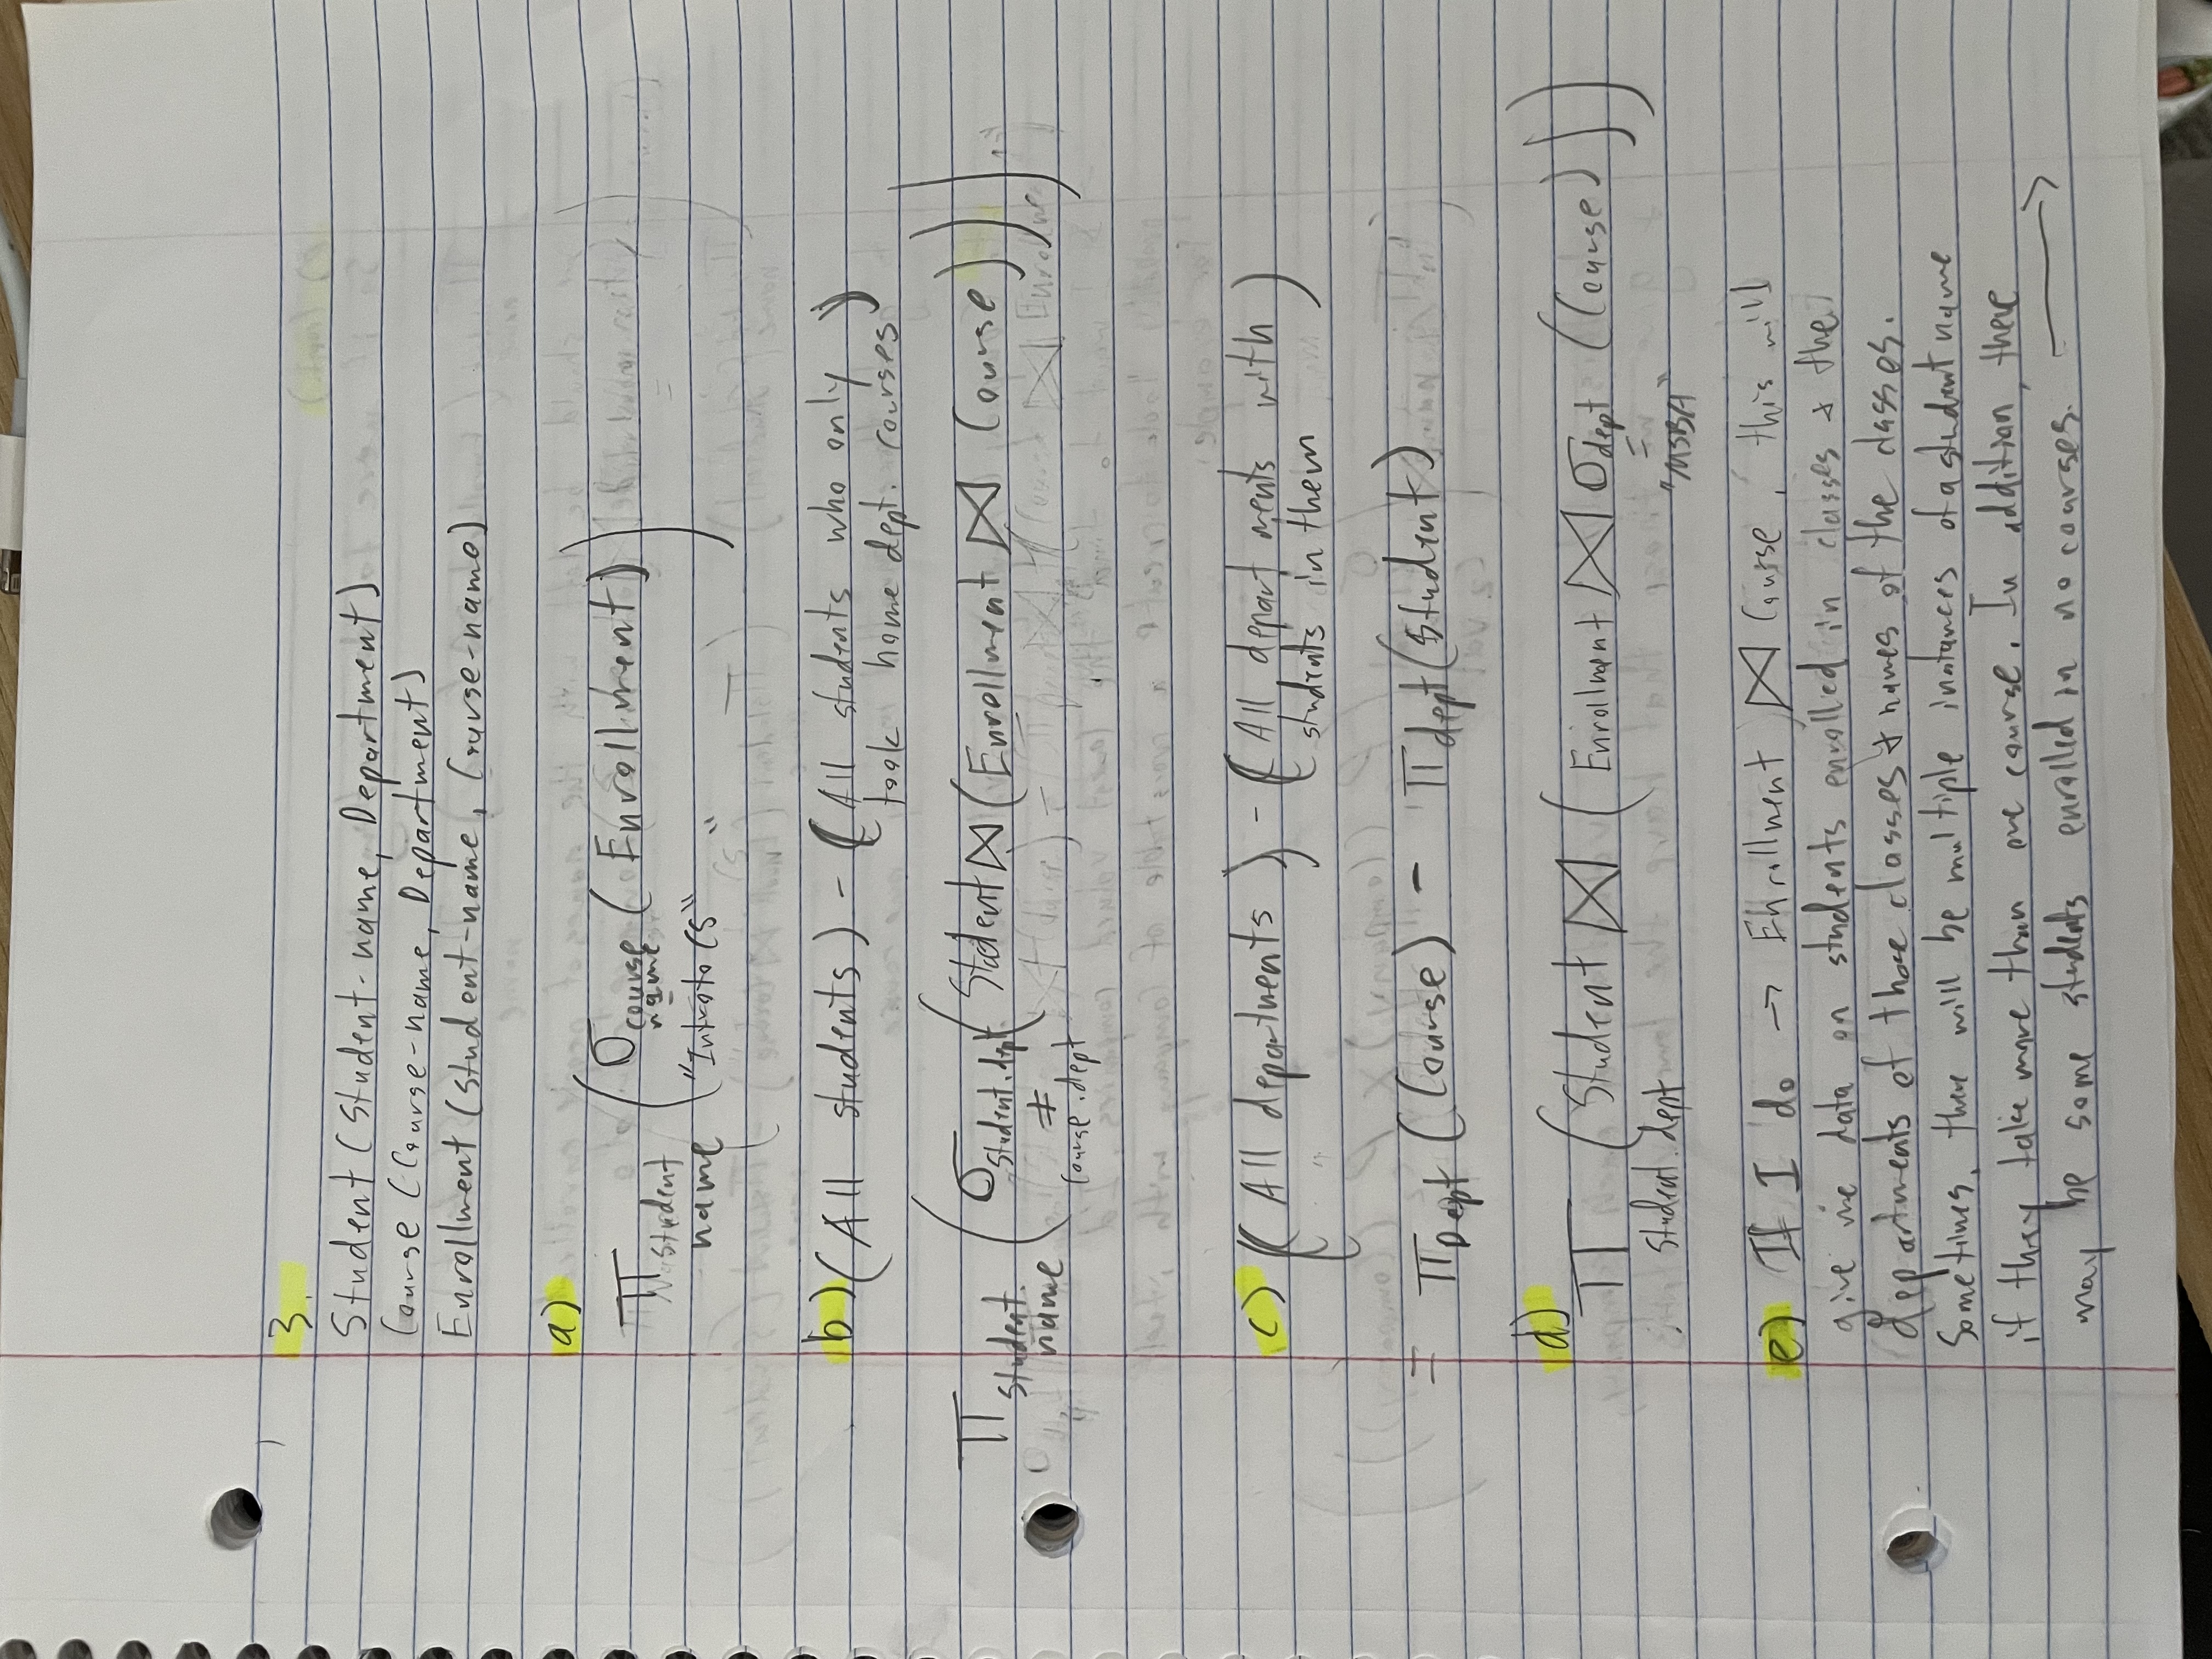 3.
Student (Student-name, Department)
Course (Course-name, Department)
Enrollment (Student-name, Course-name)
a)
π student name (σ course name = "Intro to CS" (Enrollment))
b) (All students) - (All students who only
took home dept. courses)
π student. name (σ student.dept ≠ course.dept (Student ⋈ (Enrollment ⋈ Course)))
c) (All departments) - (All departments with
students in them)
= π Dept (Course) - π dept (Student)
d)
π student.dept (Student ⋈ (Enrollment ⋈ σ dept = "MSBA" (Course)))
e) If I do → Enrollment ⋈ Course, this will
give me data on students enrolled in classes & the
departments of those classes & names of the classes.
Sometimes, there will be multiple instances of a student name
if they take more than one course. In addition, there
may be some students enrolled in no courses. →